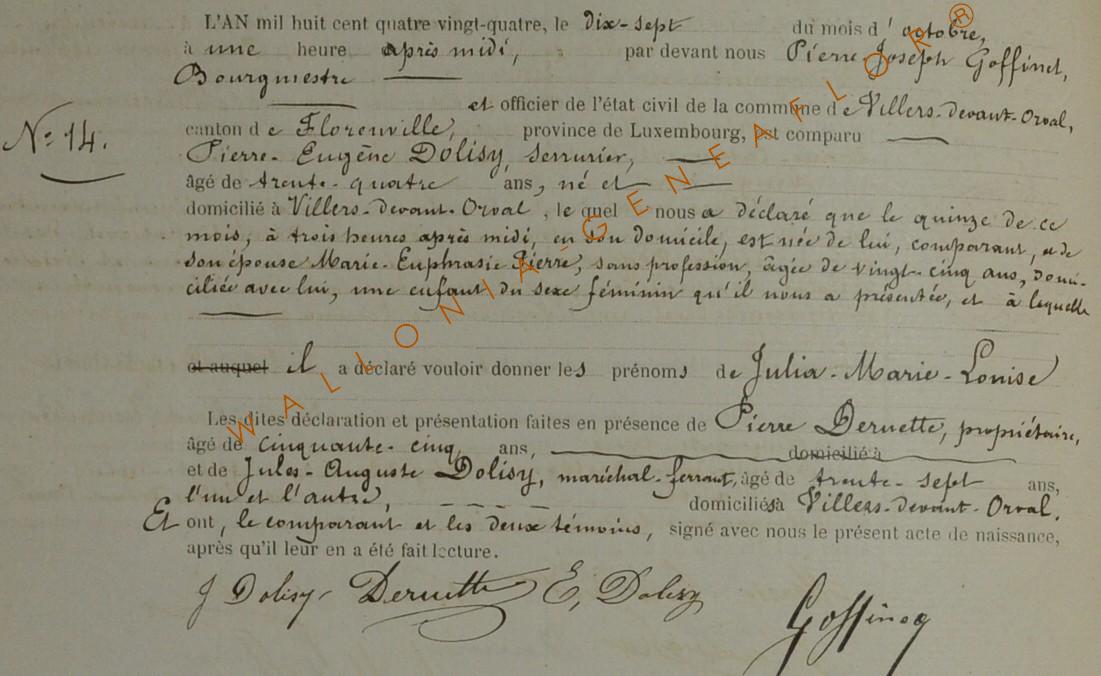 L'AN mil huit cent quatre vingt-quatre, le dix-sept du mois d'octobre,
à une heure après midi, par devant nous Pierre-Joseph Goffinet,
Bourgmestre
et officier de l'état civil de la commune de Villers-devant-Orval,
N° 14.
canton de Florenville, province de Luxembourg, est comparu
Pierre-Eugène Dolisy, serrurier,
âgé de trente-quatre ans, né et
domicilié à Villers-devant-Orval, lequel nous a déclaré que le quinze de ce
mois, à trois heures après midi, en son domicile, est née de lui, comparant, et de
son épouse Marie-Euphrasie Pierre, sans profession, âgée de vingt-cinq ans, domi-
ciliée avec lui, une enfant du sexe féminin qu'il nous a présentée, et à laquelle
et auquel il a déclaré vouloir donner les prénoms de Julia-Marie-Louise
Les dites déclaration et présentation faites en présence de Pierre Deruette, propriétaire,
âgé de cinquante-cinq ans, domicilié à
et de Jules-Auguste Dolisy, maréchal-ferrant, âgé de trente-sept ans,
l'un et l'autre, domiciliés à Villers-devant-Orval.
Et ont, le comparant et les deux témoins, signé avec nous le présent acte de naissance,
après qu'il leur en a été fait lecture.
J Dolisy Deruette E, Dolisy
Goffinet
WALLONIA-GENEAFLOR®